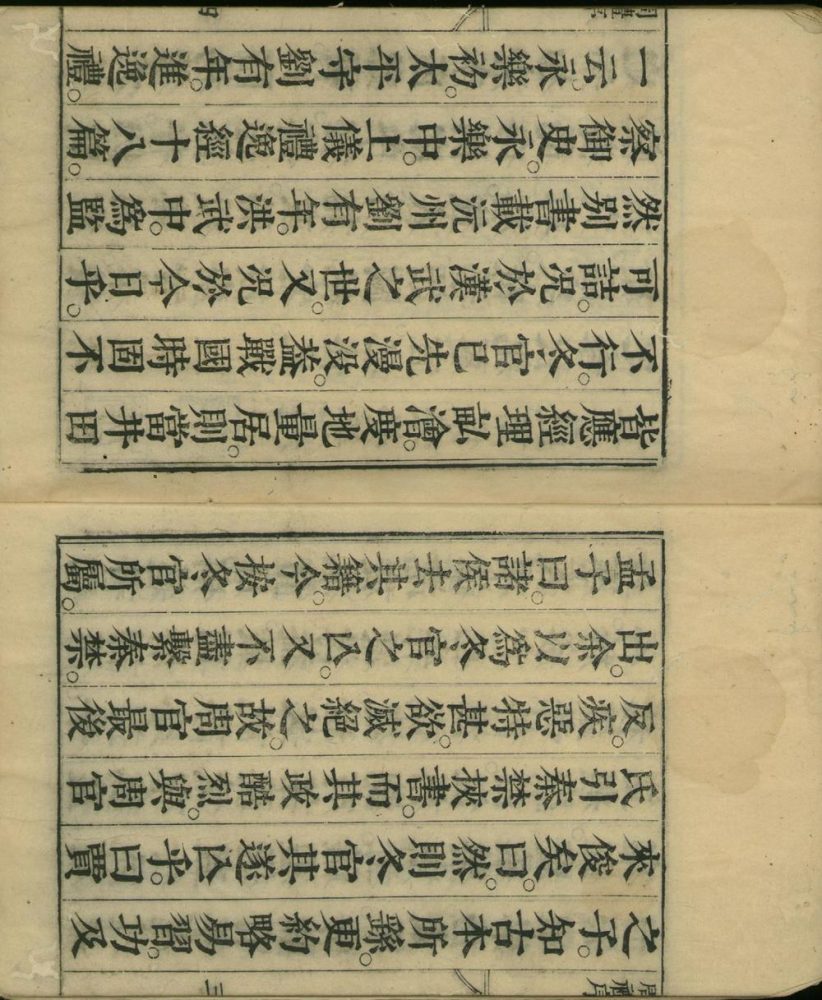 周禮序
三
之子。知古本所繇。更約略易習。功及
來俊矣。曰。然則冬官其遂亡乎。曰賈
氏引秦禁挾書。而其政酷烈。與周官
反。疾惡特甚。欲滅絕之。故周官最後
出。余以為冬官之亡。又不盡繫秦禁。
孟子曰。諸侯去其籍。今按冬官所屬。
皆應經理畝澮。度地量居。則當井田
不行。冬官已先漫沒。蓋戰國時固不
可詰。況於漢武之世。又況於今日乎。
然別書載沅州劉有年。洪武中。為監
察御史。永樂中。上儀禮逸經十八篇。
一云永樂初。太平守劉有年。進逸禮。
周禮序
四